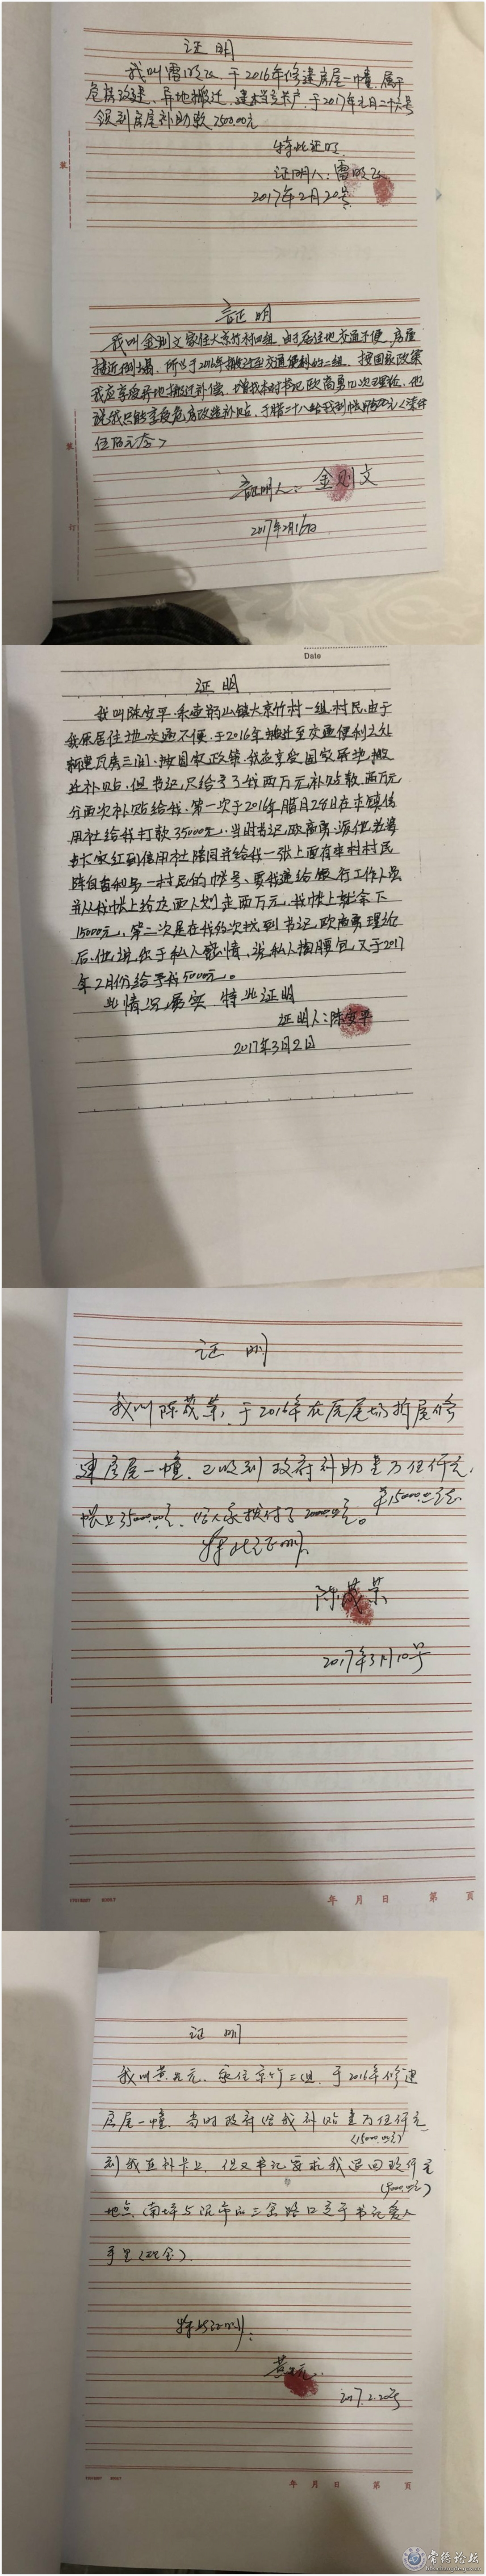 证明
我叫雷 于2016年修建房屋一幢，属于
危移改建、异地搬迁、建 户，于2017年元月二十六号
领到房屋补助款25000.00元
特此证明
证明人：雷
2017年2月20号
装
证明
我叫金则文家住大京竹村四组，由于居住地交通不便，房屋
接近倒塌，所以于2016年搬迁至交通便利的二组，按国家政策
我应享受异地搬迁补偿，增我村时书记欧高勇几次理论，他
说我只能享受危房改造补贴，于腊二十八给我到帐 元（柒仟
伍佰元态）
装
订
证明人：金则文
2017年2月16日
Date
证明
我叫陈安平，系壶瓶山镇大京竹村一组，村民，由于
我原居住地交通不便，于2016年搬迁至交通便利之处
新建瓦房三间，按国家政策，我应享受国家异地搬
迁补贴，但书记，只给予了我两万元补贴款，两万元
分两次补贴给我，第一次于2016年腊月24日在本镇信
用社给我打款35000元，当时书记欧高勇派他
红到信用社陪同并给我一张上面有本村村民
陈自百和另一村民的帐号，要我递给银行工作人员
并从我帐上给这两人划走两万元，我帐上就余下
15000元，第二次是在我多次找到书记欧高勇理论
后，他说，出于私人感情，说私人掏腰包，又于2017
年2月份给予我5000元。
此情况属实 特此证明
证明人：陈安平
2017年3月2日
证 明
我叫陈茂荣，于2016年在原屋场拆屋修
建房屋一幢，已收到政府补助壹万伍仟元，
单15000.00元
帐上35000.00元，给人家拨付了20000.00元。
特此证明
陈茂荣
2017年3月10号
年 月 日 第 页
证 明
我叫黄 元，家住京竹二组，于2016年修建
房屋一幢，当时政府给我补贴壹万伍仟元
（15000.00元）
到我直补卡上，但又书记要求我退回玖仟元
（9000.00元）
地点，南坪与泥市的三岔路口交于书记爱人
手里（现金）。
特此证明：
黄 元
2017.2.20号
年 月 日 第 页
常德论坛